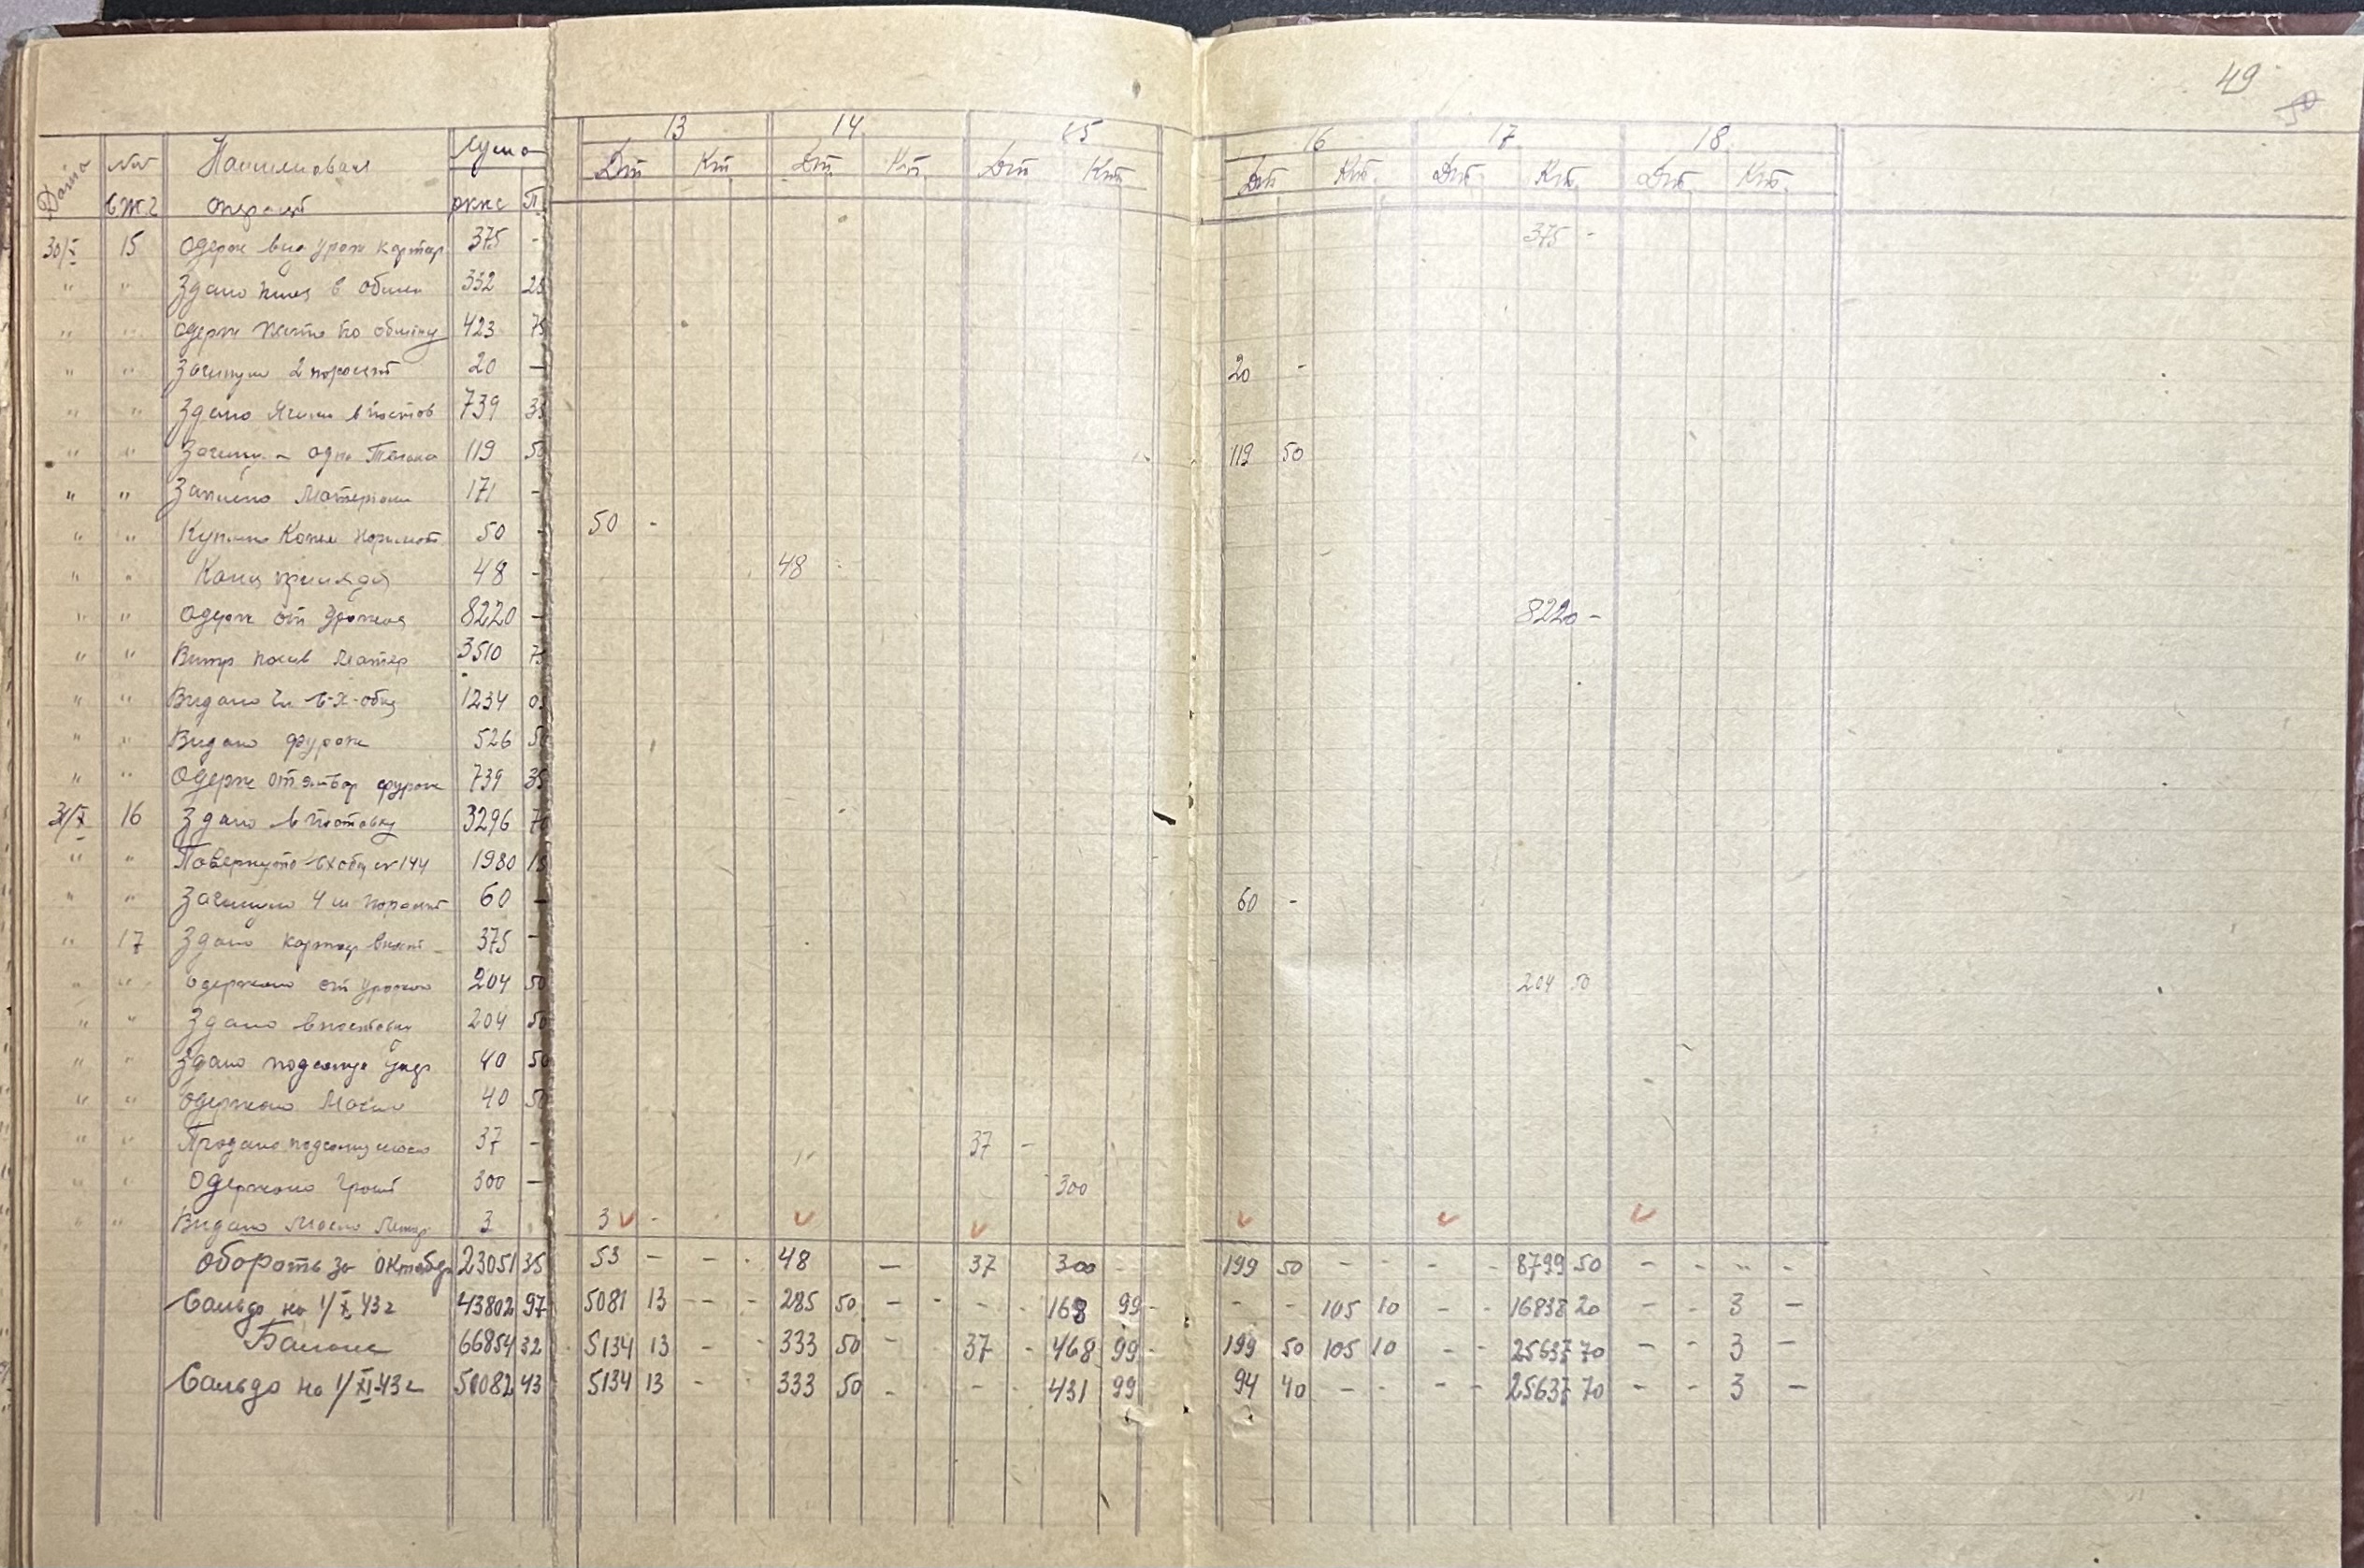 49
50
13 14 15 16 17 18
Дата №№ Наіменованя Сума Дт Кт Дт Кт Дт Кт Дт Кт Дт Кт Дт Кт
вжг операцій рккс П
30/X 15 Одерж від урож картоп 375 - 375 -
" " Здано в обмен 332 25
" " Одерж жито по обміну 423 75
" " Загинули 2 поросят 20 - 20 -
" " Здано Ячмен в постов 739 35
" " Загину - одно Теля 119 50 119 50
" " Записано Материали 171 -
" " Куплено 50 - 50 -
" " Коня 48 - 48
" " Одерж от Урожая 8220 - 8220 -
" " Витр посів Матер 3510 75
" " Видано в-х-общ 1234 05
" " Видано фураж 526 50
" " Одерж от фураж 739 35
31/X 16 Здано в поставку 3296 70
" " Повернуто в х общ № 144 1980 15
" " Загинуло 4 ш поросят 60 - 60 -
" 17 Здано картоп в пост - 375 -
" " Одержано от урожаю 204 50 204 50
" " Здано в поставку 204 50
" " Здано подсонце 40 50
" " Одержано Масло 40 50
" " Продано подсонцу масло 37 - 37 -
" " Одержано грошей 300 - 300
" " Видано Масло 3 3 -
Обороть за Октябрь 23051 35 53 - - - 48 - 37 300 - 199 50 - - - - 8799 50 - - - -
Сальдо на 1/X 43г 43802 97 5081 13 - - 285 50 - - - - 168 99 - - - 105 10 - - 16838 20 - - 3 -
Баланс 66854 32 5134 13 - - 333 50 - 37 - 468 99 - 199 50 105 10 - - 25637 70 - - 3 -
Сальдо на 1/XI-43г 50082 43 5134 13 - - 333 50 - - - - 431 99 94 40 - - - - 25637 70 - - 3 -